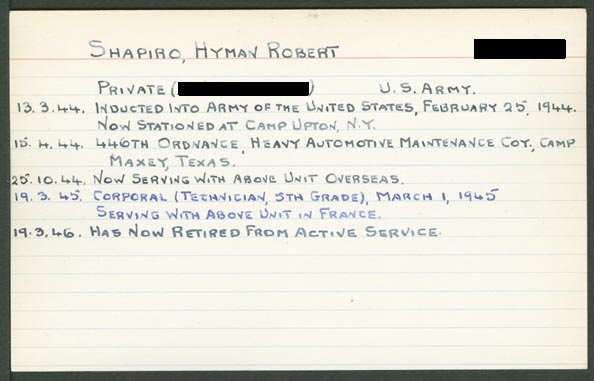 SHAPIRO, HYMAN ROBERT
PRIVATE ( ) U.S. ARMY.
13.3.44. INDUCTED INTO ARMY OF THE UNITED STATES, FEBRUARY 25, 1944.
NOW STATIONED AT CAMP UPTON, N.Y.
15.4.44. 446TH ORDNANCE, HEAVY AUTOMOTIVE MAINTENANCE COY., CAMP
MAXEY, TEXAS.
25.10.44. NOW SERVING WITH ABOVE UNIT OVERSEAS.
19.3.45. CORPORAL (TECHNICIAN, 5TH GRADE), MARCH 1, 1945
SERVING WITH ABOVE UNIT IN FRANCE.
19.3.46. HAS NOW RETIRED FROM ACTIVE SERVICE.